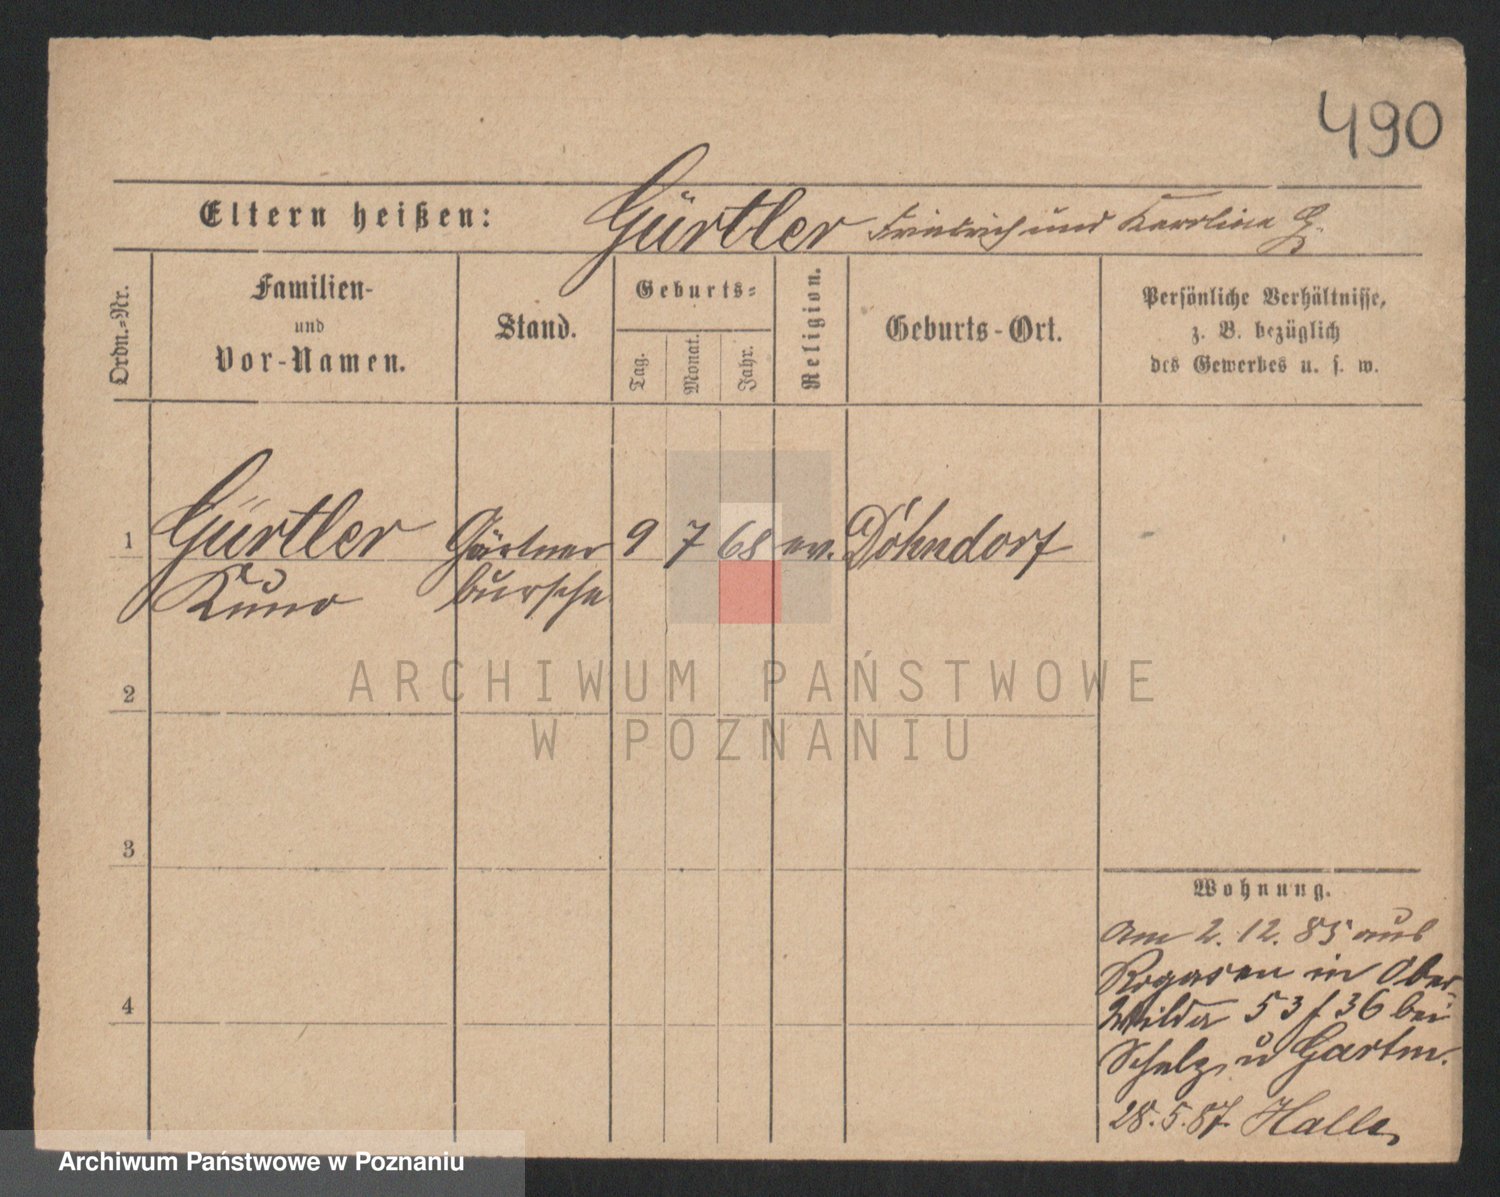 490
Eltern heißen: Gürtler Friedrich und Karoline G.
Ordn.-Nr.
Familien-
und
Vor-Namen.
Stand.
Geburts-
Tag.
Monat.
Jahr.
Religion.
Geburts-Ort.
Persönliche Verhältnisse,
z. B. bezüglich
des Gewerbes u. s. w.
1 Gürtler Gärtner 9 7 68 ev. Döhndorf
Kuno bursche
2
3
4
Wohnung.
Am 2. 12. 85 aus
Rogasen in Ober
Wilda 53/36 bei
Schulz, u Gartm.
28.5.87. Halle
ARCHIWUM PAŃSTWOWE
W POZNANIU
Archiwum Państwowe w Poznaniu